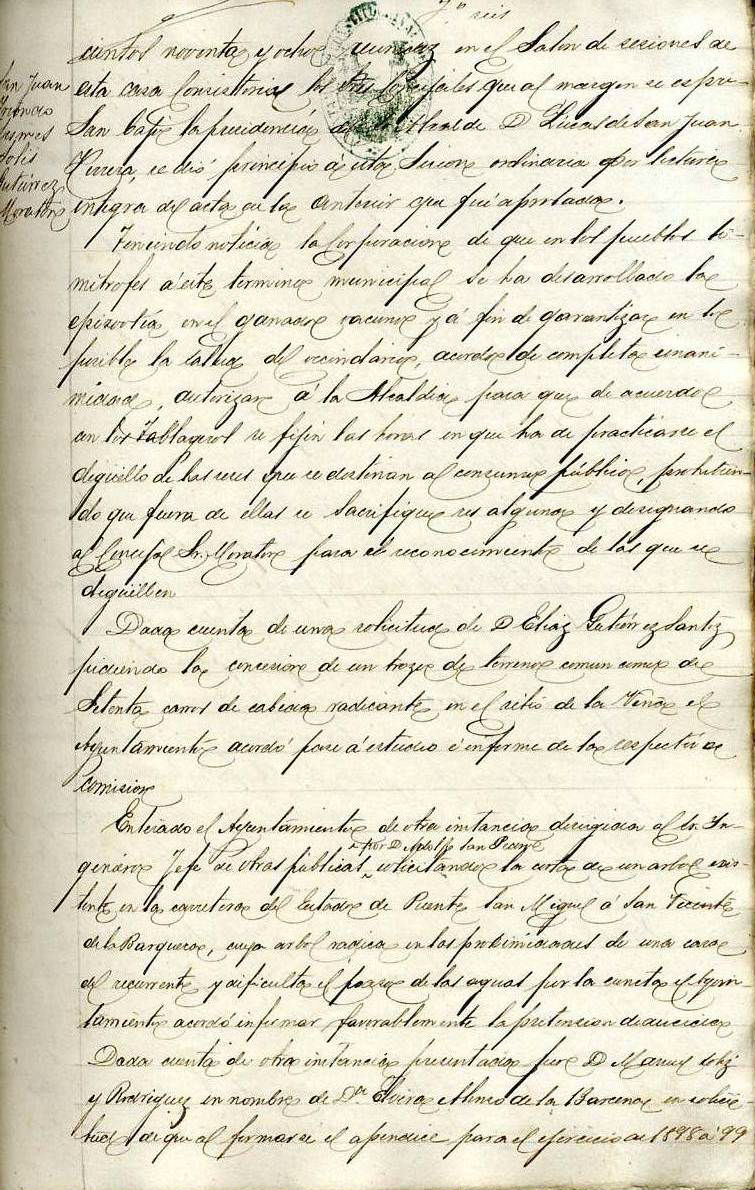 Fº seis
San Juan
Gutiérrez
Moratón
cientos noventa y ocho, reunidos en el Salon de sesiones de
esta casa Consistorial los Sres Concejales que al margen se espre-
San bajo la presidencia del Alcalde D. Lucas de San Juan
Perera, se dió principio á esta Sesion ordinaria por lectura
integra del acta de la anterior que fué aprobada.
Teniendo noticia la Corporacion de que en los pueblos li-
mitrofes á este termino municipal se ha desarrollado la
episootía en el ganado vacuno y á fin de garantizar en lo
posible la salud del vecindario, acordó de completa unani-
midad, autorizar á la Alcaldia para que de acuerdo
con los Tablageros se fijen las horas en que ha de practicarse el
degüello de las reses que se destinan al consumo público, prohibien-
do que fuera de ellas se Sacrifique res alguna y designando
al Concejal Sr. Moraton para el reconocimiento de las que se
degüellen
Dada cuenta de una solicitud de D Elias Gutiérrez Santos
pidiendo la concesion de un trozo de terreno comun como de
Setenta carros de cabida radicante en el sitio de la el
Ayuntamiento acordó pase á estudio é informe de la respectiva
comision
Enterado el Ayuntamiento de otra instancia dirigida al Sr. In-
geniero Jefe de obras públicas por D Adolfo San solicitando la corta de un arbol exis-
tente en la carretera del Estado de Puente San Miguel á San Vicente
de la Barquera, cuyo arbol radica en las proximidades de una casa
del recurrente y dificulta el paso de las aguas por la cuneta el Ayun-
tamiento acordó informar favorablemente la pretension deducida
Dada cuenta de otra instancia presentada por D Manuel
y Rodriguez en nombre de Dª Elvira de la Barcena en solici-
tud de que al formarse el apendice para el ejercicio de 1898 á 99